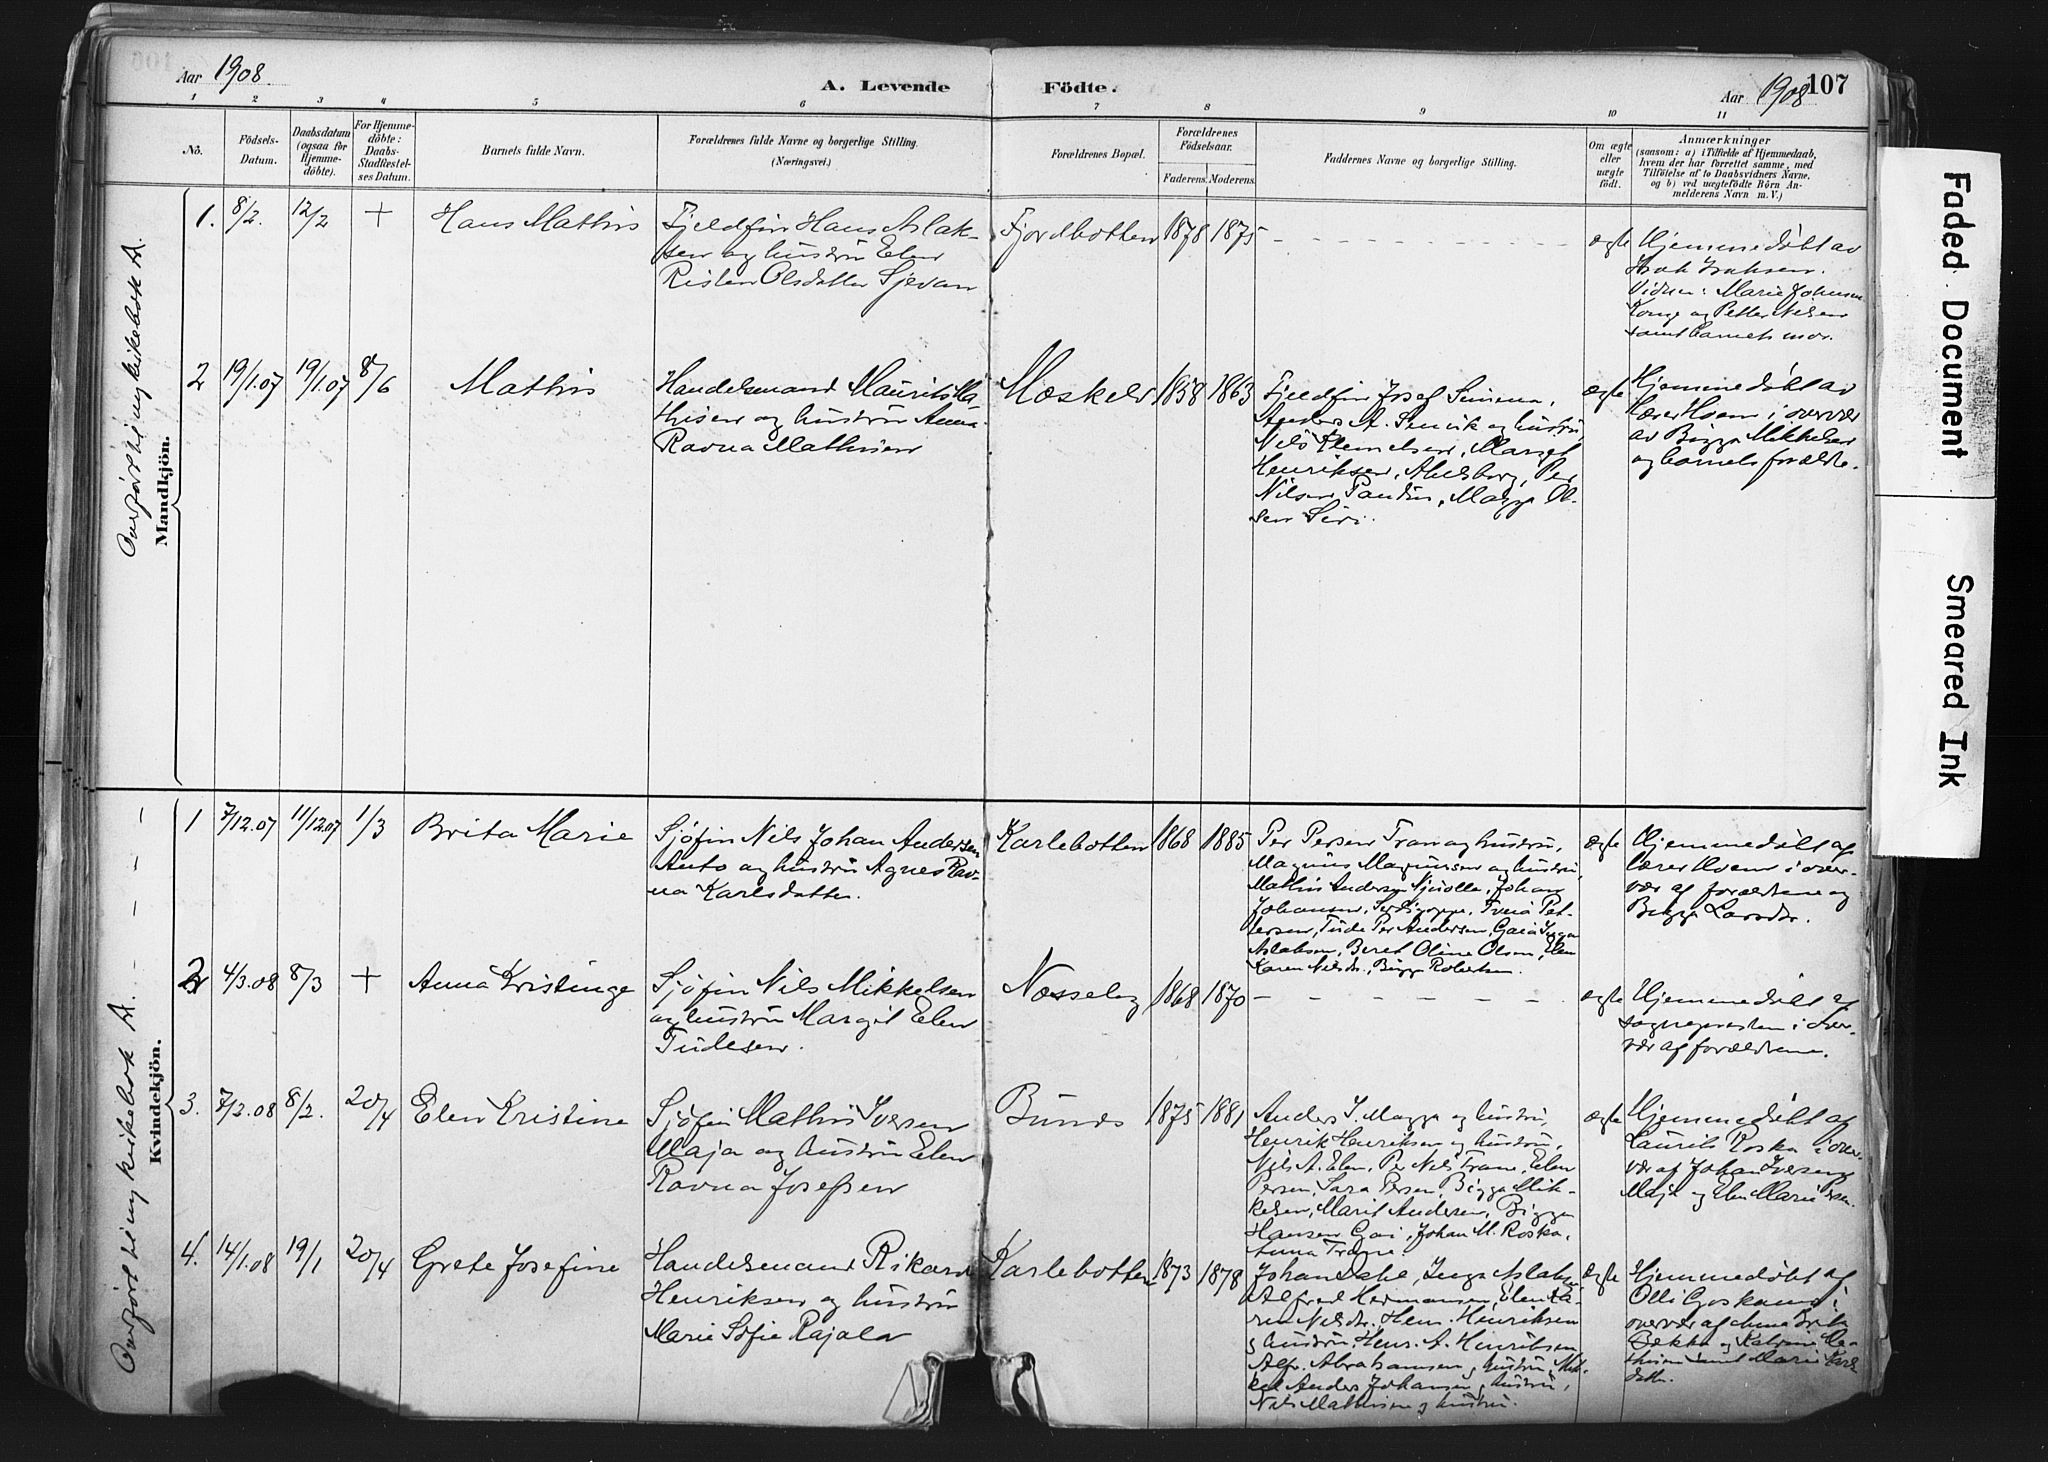 Aar 1908.
A. Levende Födte.
Aar 1908
107
1 2 3 4 5 6 7 8 9 10 11
Nö.
Födsels-Datum.
Daabsdatum (ogsaa for Hjemme-döbte).
For Hjemme-döbte: Daabs-Stadfæstel-ses Datum.
Barnets fulde Navn.
Forældrenes fulde Navne og borgerlige Stilling. (Næringsvei.)
Forældrenes Bopæl.
Forældrenes Födselsaar.
Faderens. Moderens.
Faddernes Navne og borgerlige Stilling.
Om ægte eller uægte födt.
Anmærkninger
(saasom: a) i Tilfælde af Hjemmedaab,
hvem der har forrettet samme, med
Tilföielse af to Daabsvidners Navne,
og b) ved uægtefödte Börn An-
melderens Navn m. V.)
Mandkjön.
1. 8/2. 12/2 + Hans Mathis
Fjeldfin Hans Aslak-
sen og hustru Elen
Risten Olsdatter Sjevan
Fjordbotten 1878 1875
ægte
Hjemmedøbt av
Isak Isaksen.
Vidner: Marie Johnsen
Konge og Petter Nilsen
samt barnets mor.
2 19/1.07 19/1.07 8/6 Mathis
Handelsmand Maurits Ma-
thisen og hustru Anna
Ravna Mathisen
Mæskelv 1858 1863
Fjeldfin Josef
Anders A. og hustru
Nils Klemetsen, Marget
Henriksen, Per
Nilsen Magga Ol-
sen Siri.
ægte
Hjemmedøbt av
lærer Hoem i overvær
av Bigga Mikkelsen
og barnets forældre.
Kvindekjön.
1 7/12.07 11/12.07 1/3 Brita Marie
Sjøfin Nils Johan Andersen
Anto og hustru Agnes Rav-
na Karlsdatter.
Karlebotten 1868 1885
Per Persen Trane og hustru,
Magnus Magnussen og hustru,
Mathis Andersen Johan
Johansen, Pet-
tersen, Per Andersen, Inga
Aslaksen, Beret Oline Olsen, Elen
Karen Nilsdr., Bigga Robertsen.
ægte
Hjemmedøbt af
lærer Hoem i over-
vær af forældrene og
Bigga Larsdr.
2 4/3.08 8/3 + Anna Kristinge
Sjøfin Nils Mikkelsen
og hustru Margit Elen
Tudesen.
Nesseby 1868 1870
ægte
Hjemmedøbt af
sognepresten i over-
vær af forældrene.
3. 7/2.08 8/2. 20/4 Elen Kristine
Sjøfin Mathis Iversen
Maja og hustru Elen
Ravna Josefsen
Bunds 1875 1881
Anders I. Magga og hustru,
Henrik Henriksen og hustru,
Nils A. Elen, Per Nils Trane, Elen
Persen, Sara Persen, Bigga Mik-
kelsen, Marit Andersen, Bigga
Hansen Johan M. Roska,
Anna Trane.
ægte
Hjemmedøbt af
Laurits Roska i over-
vær af Johan Iversen
Maja og Elen Marie Persen.
4. 14/1.08 19/1 20/4 Grete Josefine
Handelsmand Rikard
Henriksen og hustru
Marie Sofie Rajala
Karlebotten 1873 1878
Johan Inga Aslaksen
Alfred Hermansen, Elen Ka-
ren Nilsdr. Hen. Henriksen
og hustru, Henr. A. Henriksen
Alfr. Abrahamsen og hustru, Mik-
kel Anders Johansen og hustru,
Nils Mathisen og hustru.
ægte
Hjemmedøbt af
Olli i
overvær af Anna Brita
og Katrine Ma-
thisen samt Marie Karls-
datter.
Faded Document
Smeared Ink